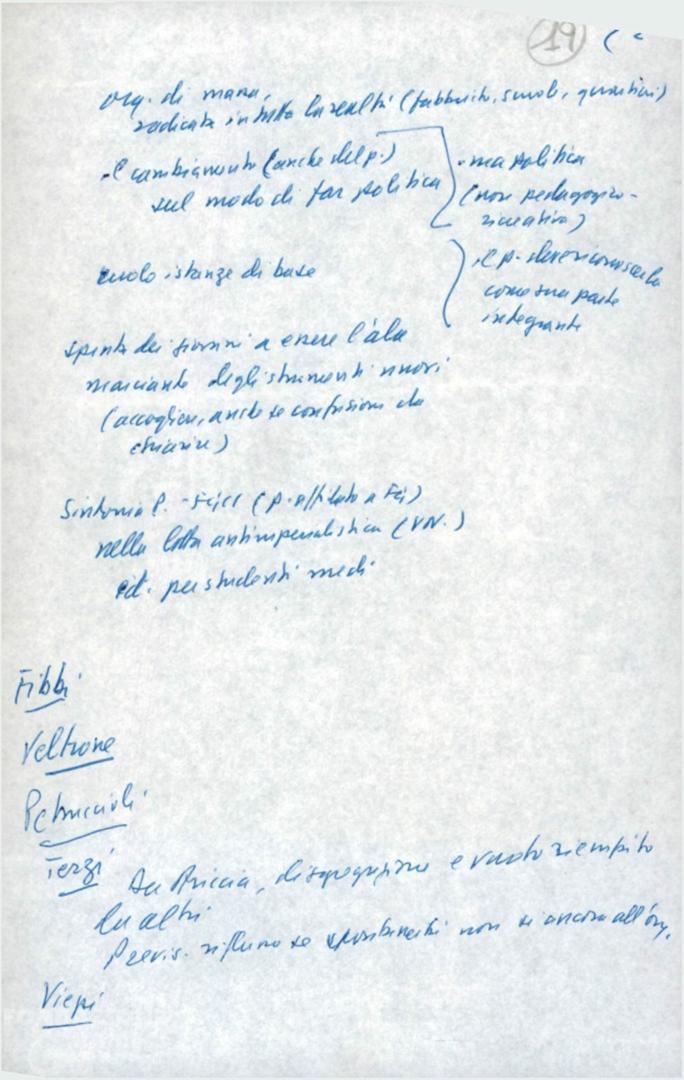 19
org. di massa,
radicata in tutta la realtà (fabbriche, scuole, quartieri)
il cambiamento (anche del p.)
sul modo di far politica
- ma politica
(non pedagogico-
ricreativa)
ruolo istanze di base
il p. deve riconoscerla
come sua parte
integrante
spinta dei giovani a essere l'ala
marciante degli strumenti nuovi
(accogliere, anche se confusioni da
chiarire)
Sintonia P. - FGCI (p. affidato a FG)
nella lotta antimperialistica
id. per studenti medi
Fibbi
Veltrone
Petruccioli
Terzi
Da Ariccia, disgregazione e vuoto riempito
da altri
Previs. riflusso se spontaneità non si ancora all'org.